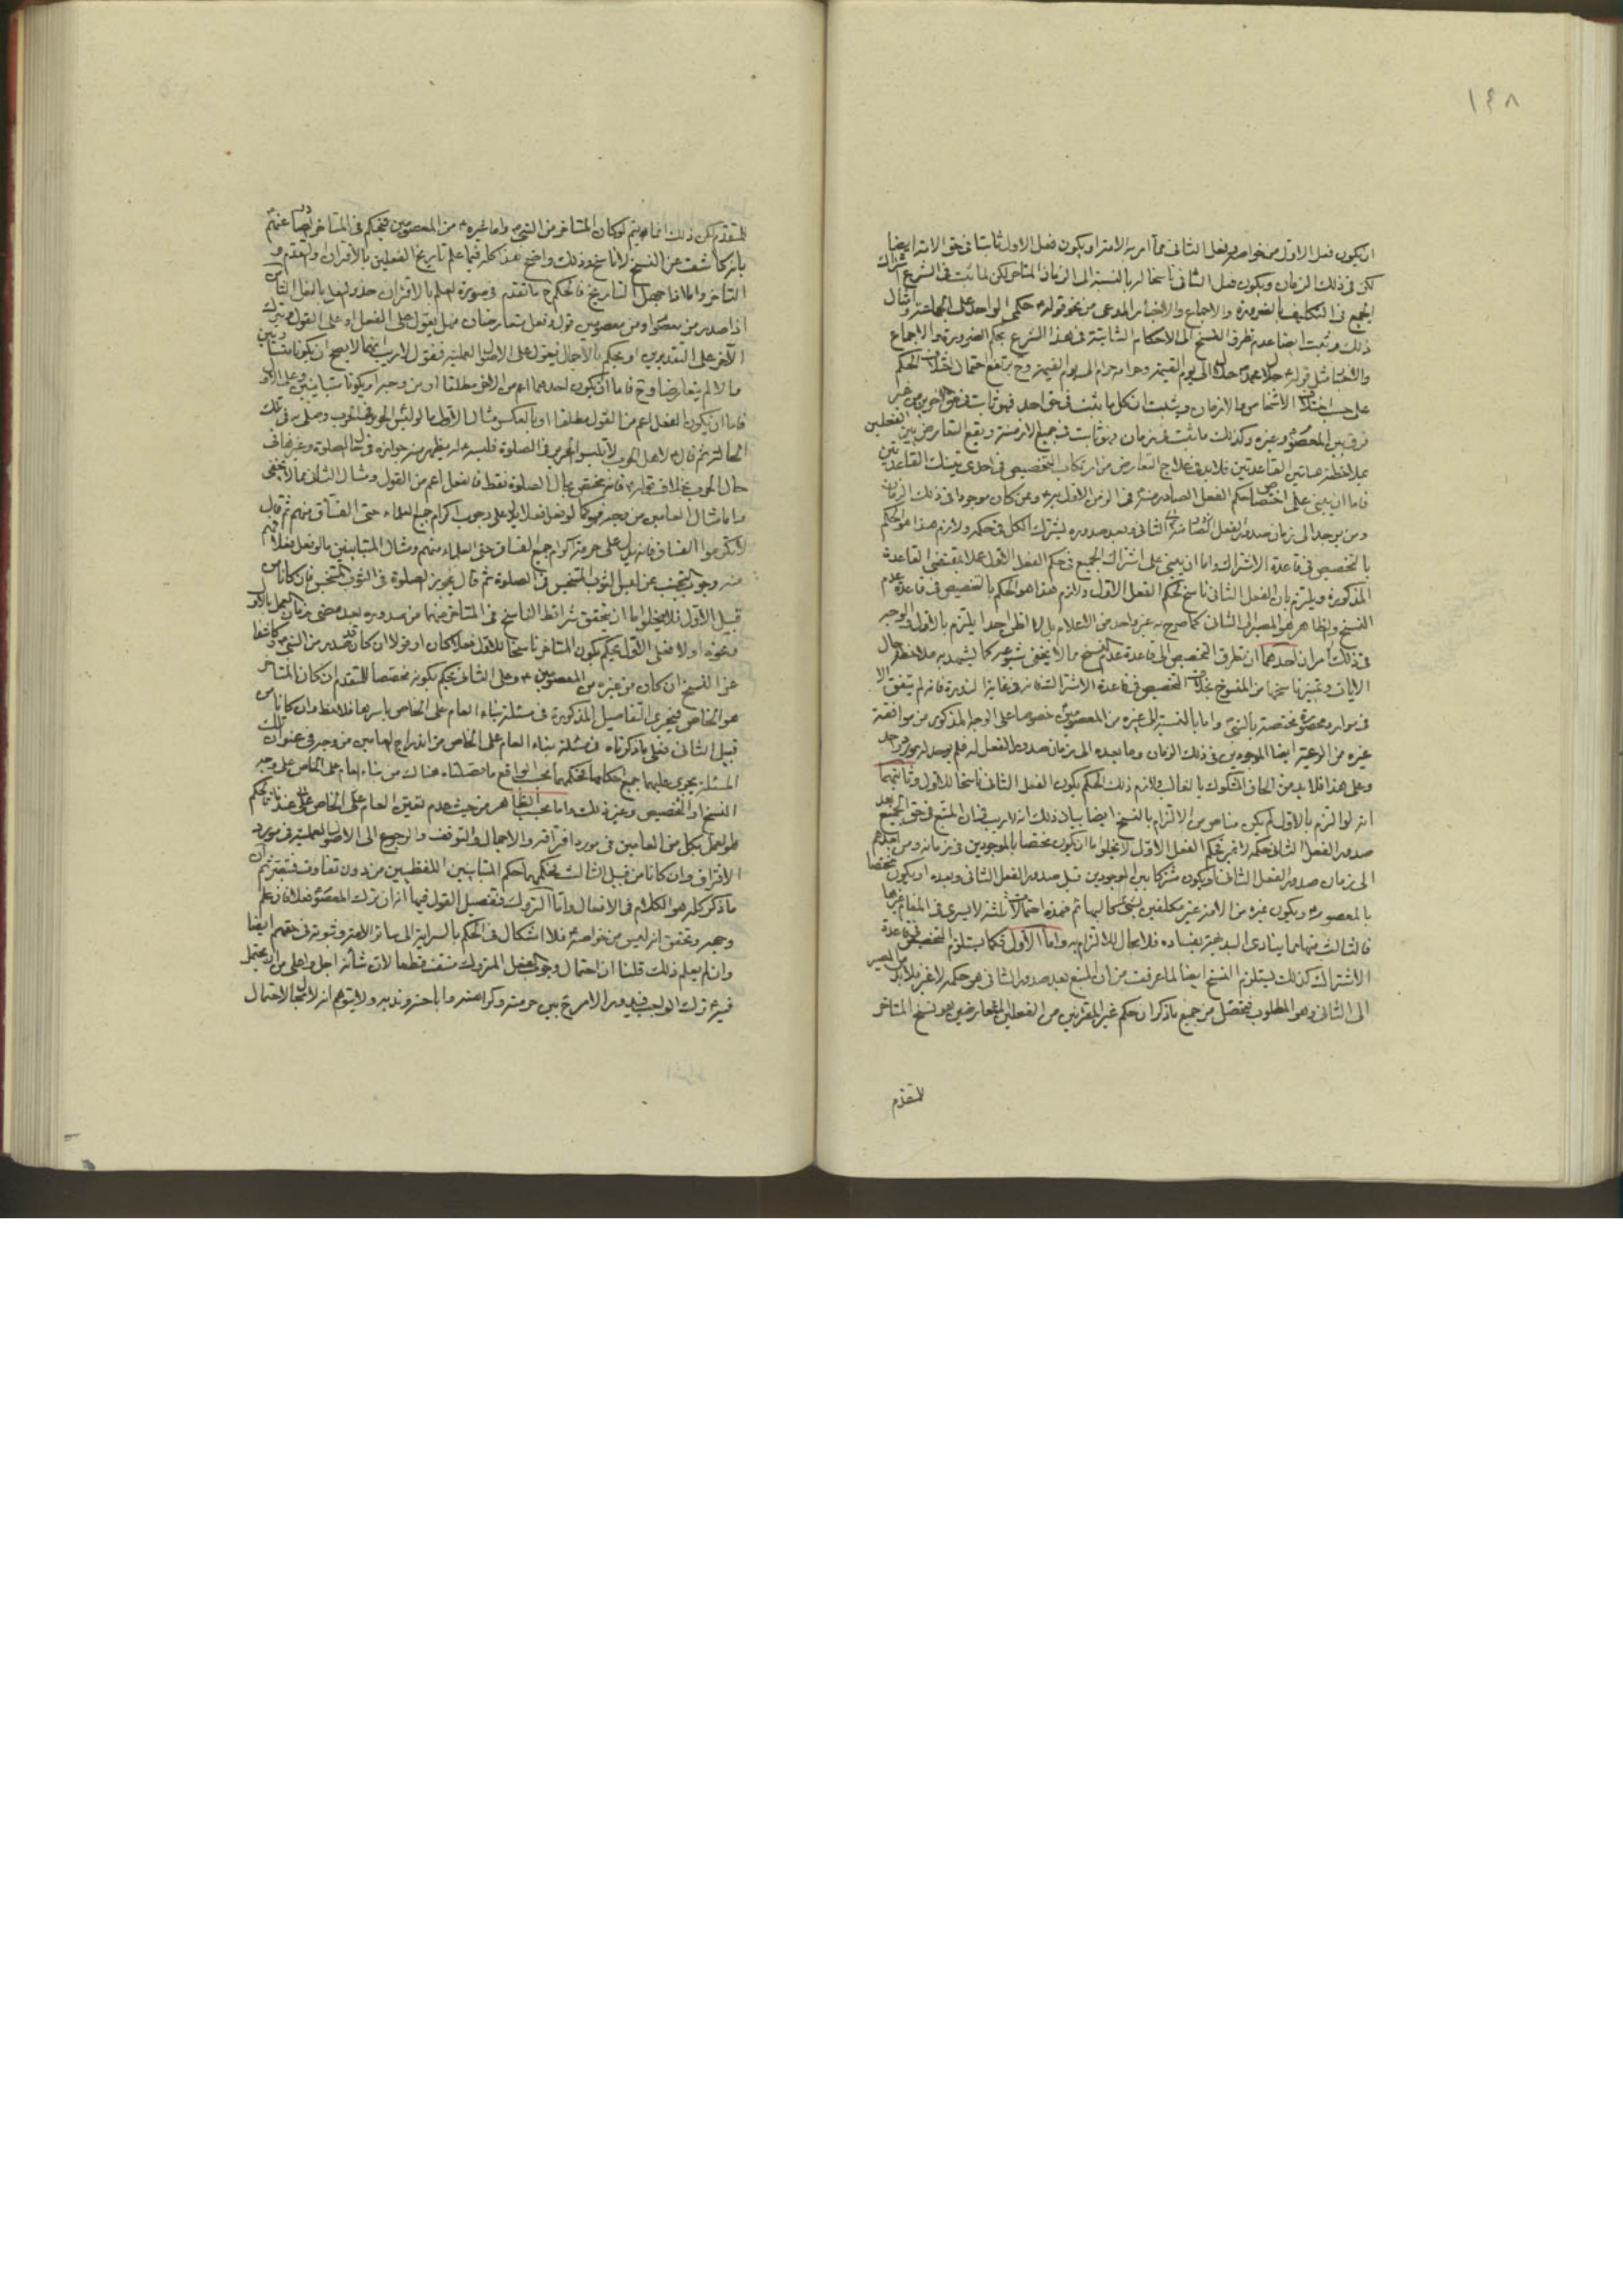 ١٤٨
ان يكون فعل الاول من خواصه وفعل الثانى مما امر به الامة او يكون فعل الاول ثابتا فى حق الامة ايضا
لكن فى ذلك الزمان ويكون فعل الثانى ناسخا له بالنسبة الى الزمان المتاخر لكن لما ثبت فى الشرع اشتراك
الجميع فى التكليف بالضرورة والاجماع والاخبار المدعى من نحو قوله حكمى على الواحد حكمى على الجماعة وامثال
ذلك وثبت ايضا عدم تطرق النسخ الى الاحكام الثابتة فى هذا الشرع بحكم الضرورة والاجماع
والاخبار مثل قوله حلال محمد حلال الى يوم القيمة وحرامه حرام الى يوم القيمة وح يرتفع احتمال اختلاف الحكم
على حسب اختلاف الاشخاص والازمان ويثبت ان كل ما يثبت فى حق احد فهو ثابت فى حق الاخرين من غير
فرق بين المعصوم وغيره وكذلك ما يثبت فى زمان فهو ثابت فى جميع الازمنة ويقع التعارض بين الفعلين
بملاحظة هاتين القاعدتين فلابد فى علاج التعارض من ارتكاب التخصيص فى احدى تينك القاعدتين
فاما ان يبنى على اختصاص حكم الفعل الصادر منه فى الزمن الاول به وبمن كان موجودا فى ذلك الزمان
ومن يوجد الى زمان صدور الفعل الثانى وبعد صدوره يشترك الكل فى حكمه ولازم هذا هو الحكم
بالتخصيص فى قاعدة الاشتراك واما ان يبنى على اشتراك الجميع فى حكم الفعل الاول عملا بمقتضى القاعدة
المذكورة ويلتزم بان الفعل الثانى ناسخ لحكم الفعل الاول ولازم هذا هو الحكم بالتخصيص فى قاعدة عدم
النسخ والظاهر هو المصير الى الثانى كما صرح به غير واحد من الاعلام بل لم اظن احدا يلتزم بالاول والوجه
فى ذلك امران احدهما ان تطرق التخصيص الى قاعدة عدم النسخ مما لا يخفى شيوعه كما يشهد به ملاحظة حال
الايات وتمييز ناسخها من المنسوخ بخلاف التخصيص فى قاعدة الاشتراك فانه فى غاية الندرة فانه لم يتفق الا
فى موارد محصورة مختصة بالنبى واما بالنسبة الى غيره من المعصومين خصوصا على الوجه المذكور من موافقة
غيره من الرعية ايضا الموجودين فى ذلك الزمان وما بعده الى زمان صدور الفعل له فلم يوجد له مورد واحد
وعلى هذا فلابد من الحاق المشكوك بالغالب ولازم ذلك الحكم بكون الفعل الثانى ناسخا للاول وثانيهما
انه لو التزم بالاول لم يكن مناص من الالتزام بالنسخ ايضا بيان ذلك انه لاريب فى ان المتبع فى حق الجميع بعد
صدور الفعل الثانى حكمه لا غير فحكم الفعل الاول لا يخلو اما ان يكون مختصا بالموجودين فى زمانه ومن بعدهم
الى زمان صدور الفعل الثانى او يكون مشتركا بين الموجودين قبل صدور الفعل الثانى وبعده او يكون مختصا
بالمعصوم ويكون غيره من الامة غير مكلفين بشئ ثم فهذه احتمالات ثلثة لا يسرى فى المقام غيرها
فالثالث منها مما ينادى البديهة بفساده فلا مجال للالتزام به واما الاول فكما يستلزم التخصيص فى قاعدة
الاشتراك كذلك يستلزم النسخ ايضا لما عرفت من ان المتبع بعد صدور الثانى هو حكمه لا غير فلابد من المصير
الى الثانى وهو المطلوب فتحصل من جميع ما ذكر ان حكم غير المقترنين من الفعلين المتعارضين هو نسخ المتاخر
للمتقدم
للمتقدم لكن ذلك انما يتم لو كان المتاخر من النبى واما غيره من المعصومين فيحكم فى المتاخر
بانه كاشف عن النسخ لا ناسخ وذلك واضح هذا كله فيما علم تاريخ الفعلين بالاقتران والتقدم و
التاخر واما اذا جهل التاريخ فالحكم ما تقدم فى صورة العلم بالاقتران
اذا صدر من معصوم او من معصومين قول وفعل متعارضان فهل يعول على الفعل او على القول ويترك
الآخر على التقديرين او يحكم بالاجمال فيعول على الاصول العملية فنقول لاريب انهما لا يصح ان يكونا متساويين
والا لم يتعارضا وح فاما ان يكون احدهما اعم من الاخر مطلقا او من وجه او يكونا متباينين وعلى الاول
فاما ان يكون الفعل اعم من القول مطلقا او بالعكس مثال الاول ما لو لبس الحرير فى الحرب وصلى فى تلك
الحالة ثم قال لاهل الحرب لا تلبسوا الحرير فى الصلوة فلبسه يظهر منه جوازه فى حال الصلوة وغيرها فى
حال الحرب بخلاف قوله فانه يختص بحال الصلوة فقط فالفعل اعم من القول ومثال الثانى مما لا يخفى
واما مثال العامين من وجه فهو كما لو فعل فعلا يدل على وجوب اكرام جميع العلماء حتى الفساق منهم ثم قال
لا تكرموا الفساق فانه يدل على حرمة اكرام جميع الفساق حتى العلماء منهم ومثال المتباينين ما لو فعل فعلا فهم
منه وجوب التجنب عن لبس الثوب المتنجس فى الصلوة ثم قال يجوز الصلوة فى الثوب المتنجس فان كانا من
قبيل الاول فلا يخلو اما ان يتحقق شرائط الناسخ فى المتاخر منهما من صدوره بعد مضى زمان العمل بالاول
ونحوه او لا فعلى الاول يحكم بكون المتاخر ناسخا للاول فعلا كان او قولا ان كان قد صدر من النبى وكاشفا
عن النسخ ان كان من غيره من المعصومين وعلى الثانى يحكم بكونه مخصصا للمتقدم ان كان المتاخر
هو الخاص فيجرى التفاصيل المذكورة فى مسئلة بناء العام على الخاص باسرها فلاحظ وان كانا من
قبيل الثانى فعلى ما ذكرناه فى مسئلة بناء العام على الخاص من اندراج العامين من وجه فى عنوان تلك
المسئلة يجرى عليهما جميع احكامها فحكمهما بحسب الواقع ما فصلناه هنالك من بناء العام على الخاص على وجه
النسخ او التخصيص وغير ذلك واما بحسب الظاهر من حيث عدم تعين العام على الخاص فالحكم
هو العمل بكل من العامين فى مورد افتراقه والاجمال والتوقف والرجوع الى الاصول العملية فى مورد
الافتراق وان كانا من قبيل الثالث فحكمهما حكم المتباينين اللفظيين من دون تفاوت فتبصر ثم ان
ما ذكر كله هو الكلام فى الافعال واما التروك فتفصيل القول فيها انه ان ترك المعصوم فعلا فان علم
وجهه وتحقق انه ليس من خواصه فلا اشكال فى الحكم بالسراية الى سائر الامة وثبوته فى حقهم ايضا
وان لم يعلم ذلك قلنا ان احتمال وجوب الفعل المتروك منتف قطعا لان شأنه اجل واعلى من ان يحتمل
فيه ترك الواجب فيدور الامر ح بين حرمته وكراهته واباحته وندبه ولا يتوهم انه لا مجال لاحتمال